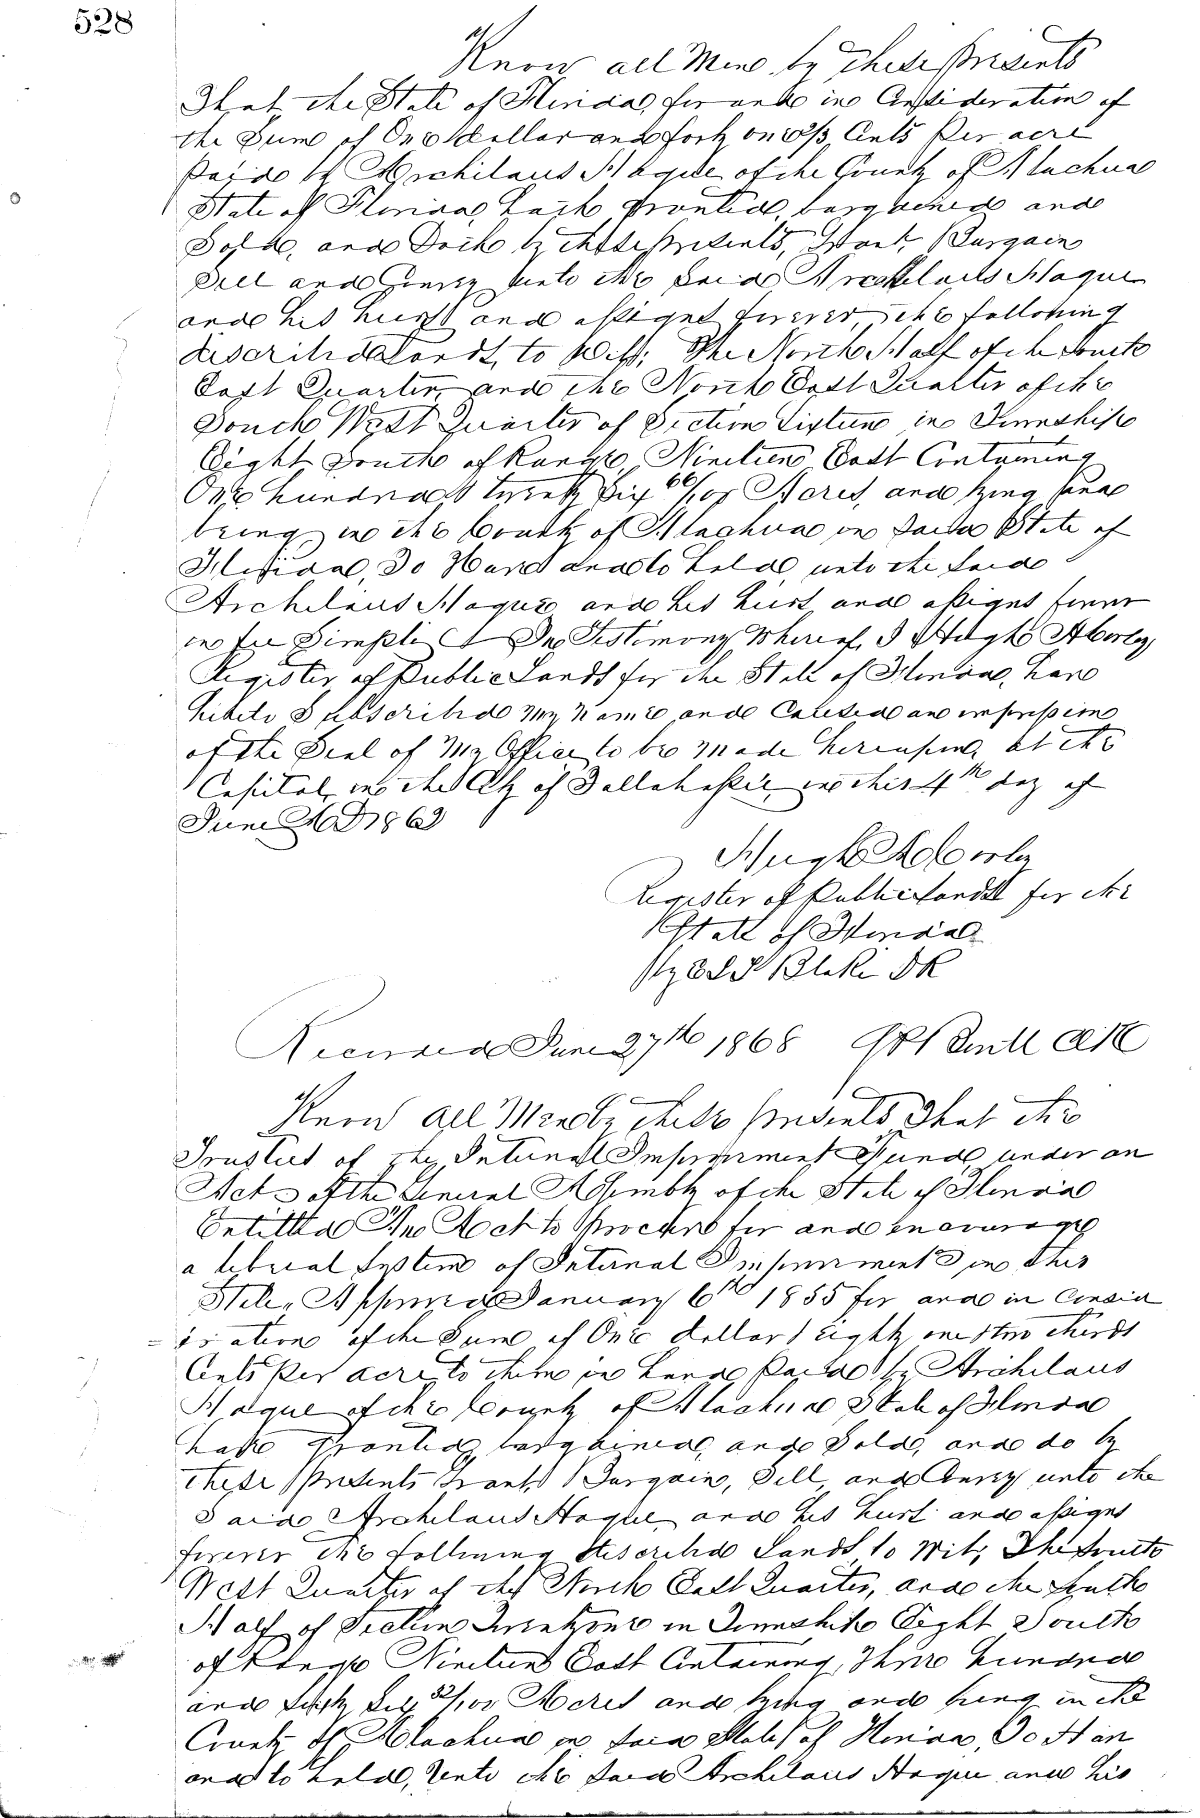 528
Know all Men by these presents
That the State of Florida, for and in Consideration of
the Sum of One dollar and forty one 2/3 Cents Per acre
Paid by Archilaus Hague of the County of Alachua
State of Florida, hath Granted, bargained and
Sold, and Doth by these presents, Grant, Bargain
Sell and Convey unto the Said Archelaus Hague
and his heirs and assigns forever, the following
described Lands, to Wit; The North Half of the South
East Quarter, and the North East Quarter of the
South West Quarter of Section Sixteen in Township
Eight South of Range Nineteen East Containing
One hundred & twenty Six 66/100 Acres, and lying and
being in the County of Alachua in Said State of
Florida, To Have and to hold, unto the Said
Archelaus Hague and his heirs and assigns forever
in fee Simple In Testimony Whereof, I Hugh A Corley
Register of Public Lands for the State of Florida, have
hereto Subscribed My Name and Caused an impression
of the Seal of My Office to be made hereupon, at the
Capital, in the City of Tallahassee, in this 4th day of
June AD 1863
Hugh A Corley
Register of Public Lands for the
State of Florida
By Blake DR
Recorded June 27th 1868 Clk
Know all Men by these presents That the
Trustees of the Internal Improvement Fund under an
Act of the General Assembly of the State of Florida
Entitled An Act to Provide for and encourage
a liberal System of Internal Improvements in this
State, Approved January 6th 1855 for and in Consid
eration of the Sum of One dollar & Eighty one & two thirds
Cents Per acre to them in hand Paid by Archelaus
Hague of the County of Alachua State of Florida
have Granted, bargained, and Sold, and do by
these presents Grant, Bargain, Sell, and Convey unto the
Said Archelaus Hague, and his heirs and assigns
forever the following described Lands to Wit; The South
West Quarter of the North East Quarter, and the South
Half of Section Twenty one in Township Eight South
of Range Nineteen East Containing, Three hundred
and Sixty Six 52/100 Acres and lying and being in the
County of Alachua in Said State of Florida, To Have
and to hold, Unto the Said Archelaus Hague and his